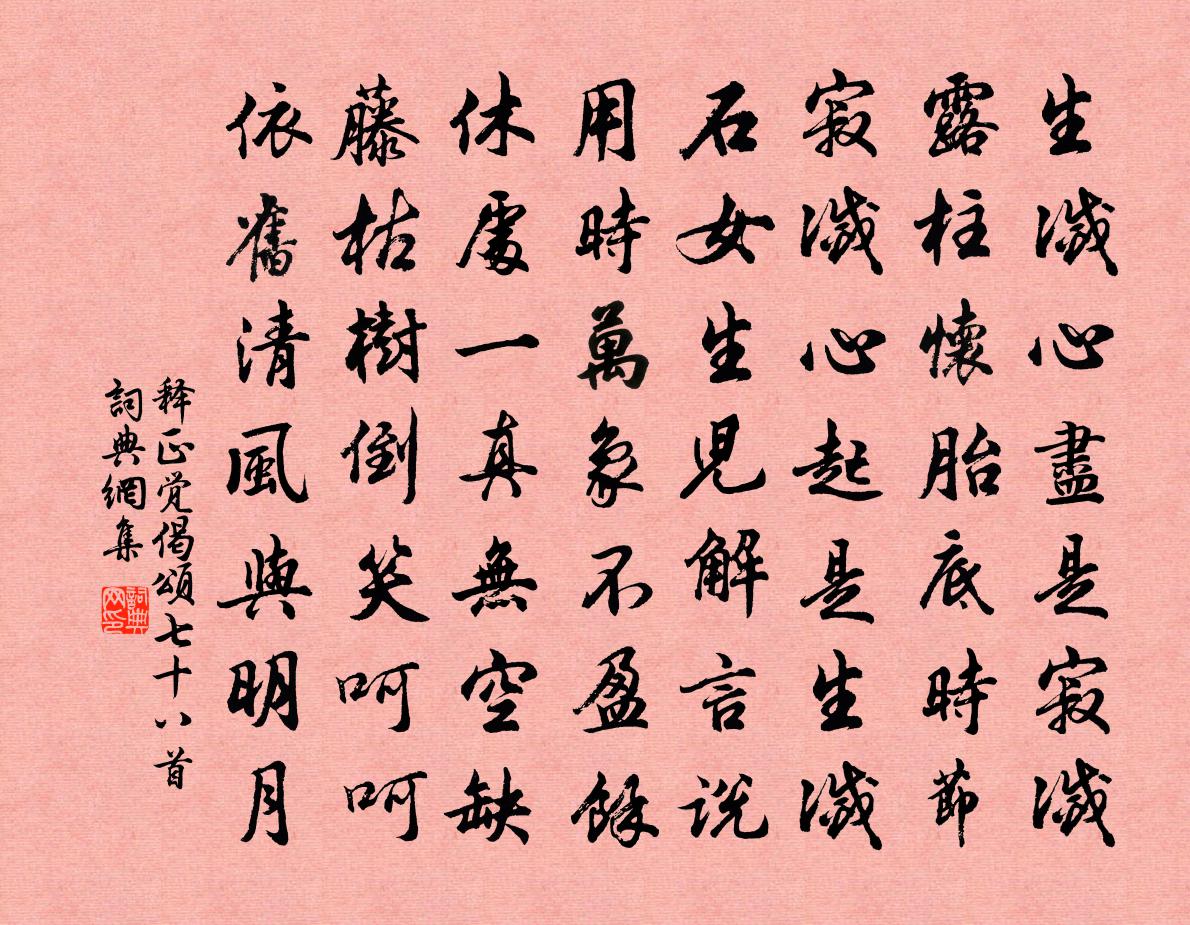 生滅心盡是寂滅
露柱懷胎底時節
寂滅心起是生滅
石女生兒解言說
用時萬象不盈餘
休處一真無空缺
藤枯樹倒笑呵呵
依舊清風與明月
释正觉偈頌七十八首
詞典網集
詞典网印